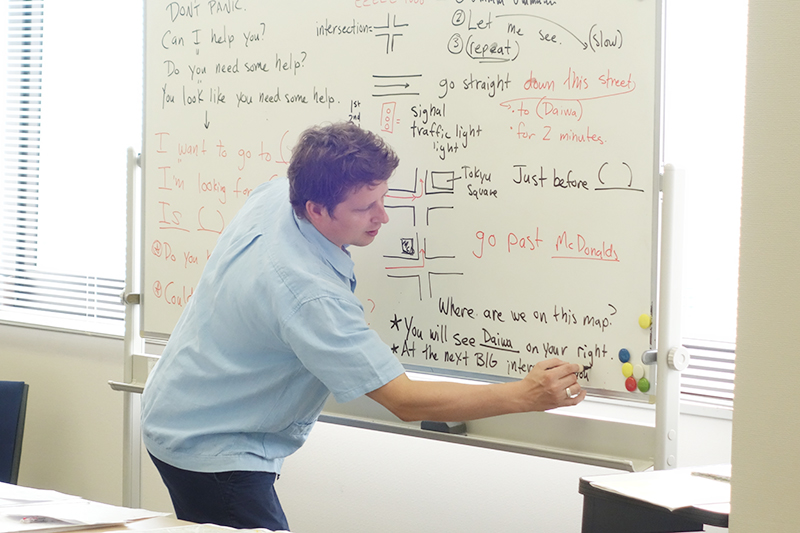 DON'T PANIC.
Can I help you?
Do you need some help?
You look like you need some help.
I want to go to (
I'm looking for
Is ( )
Do you h
Could
intersection=
② Let me see.
③ (repeat)
(slow)
go straight down this street
to (Daiwa)
for 2 minutes.
1st
2nd
= signal
traffic light
light
Tokyu
Square
Just before ( )
go past McDonalds
?
Where are we on this map?
* You will see Daiwa on your right.
* At the next BIG inter you